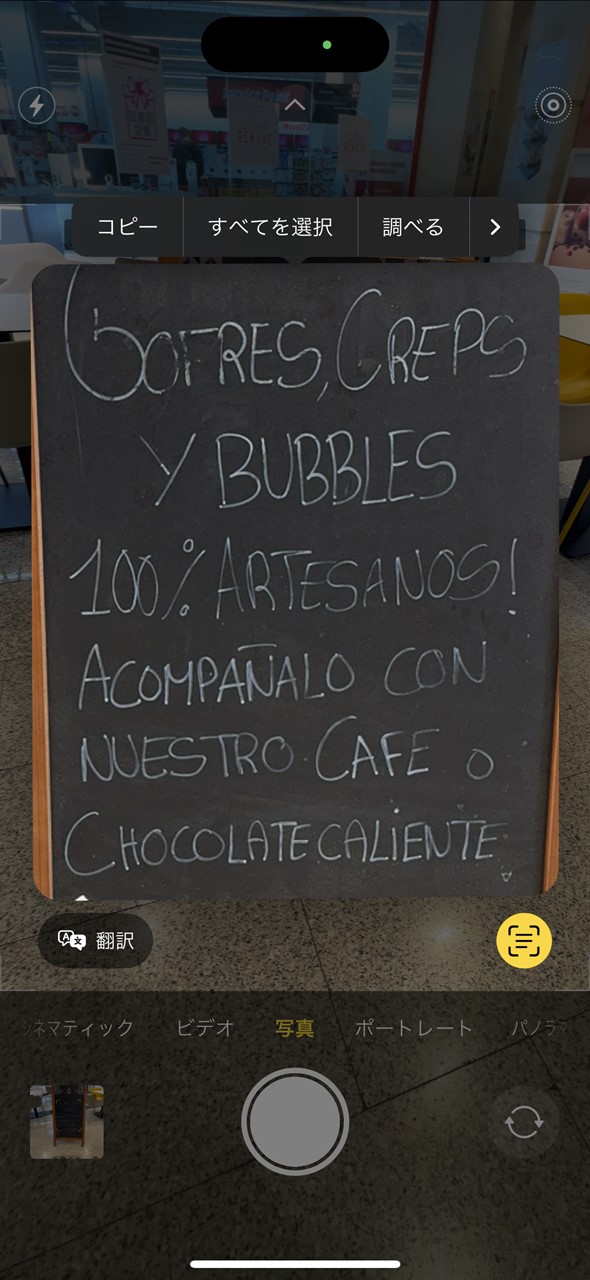 コピー
すべてを選択
調べる
GOFRES, CREPS
Y BUBBLES
100% ARTESANOS!
ACOMPAÑALO CON
NUESTRO CAFE O
CHOCOLATE CALIENTE
翻訳
ネマティック
ビデオ
写真
ポートレート
パノラマ